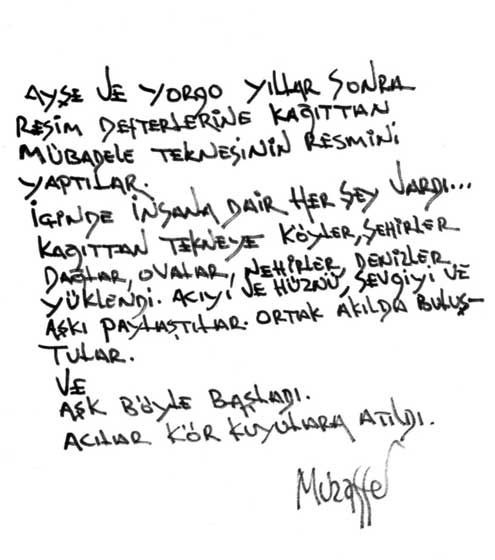 AYŞE VE YORGO YILLAR SONRA
RESİM DEFTERLERİNE KAĞITTAN
MÜBADELE TEKNESİNİN RESMİNİ
YAPTILAR.
İÇİNDE İNSANA DAİR HER ŞEY VARDI...
KAĞITTAN TEKNEYE KÖYLER, ŞEHİRLER
DAĞLAR, OVALAR, NEHİRLER, DENİZLER
YÜKLENDİ. ACIYI VE HÜZNÜ, SEVGİYİ VE
AŞKI PAYLAŞTILAR. ORTAK AKILDA BULUŞ-
TULAR.
VE
AŞK BÖYLE BAŞLADI.
ACILAR KÖR KUYULARA ATILDI.
Muzaffer